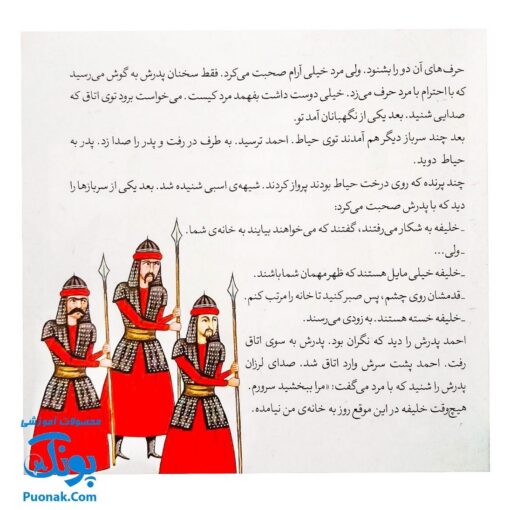 حرف‌های آن دو را بشنود. ولی مرد خیلی آرام صحبت می‌کرد. فقط سخنان پدرش به گوش می‌رسید
که با احترام با مرد حرف می‌زد. خیلی دوست داشت بفهمد مرد کیست. می‌خواست برود توی اتاق که
صدایی شنید. بعد یکی از نگهبانان آمد تو.
بعد چند سرباز دیگر هم آمدند توی حیاط. احمد ترسید. به طرف در رفت و پدر را صدا زد. پدر به
حیاط دوید.
چند پرنده که روی درخت حیاط بودند پرواز کردند. شیهه‌ی اسبی شنیده شد. بعد یکی از سربازها را
دید که با پدرش صحبت می‌کرد:
ـ خلیفه به شکار می‌رفتند، گفتند که می‌خواهند بیایند به خانه‌ی شما.
ـ ولی...
ـ خلیفه خیلی مایل هستند که ظهر مهمان شما باشند.
ـ قدمشان روی چشم، پس صبر کنید تا خانه را مرتب کنم.
ـ خلیفه خسته هستند. به زودی می‌رسند.
احمد پدرش را دید که نگران بود. پدرش به سوی اتاق
رفت. احمد پشت سرش وارد اتاق شد. صدای لرزان
پدرش را شنید که با مرد می‌گفت: «مرا ببخشید سرورم.
هیچ‌وقت خلیفه در این موقع روز به خانه‌ی من نیامده.
محصولات آموزشی
پونک
Puonak.Com